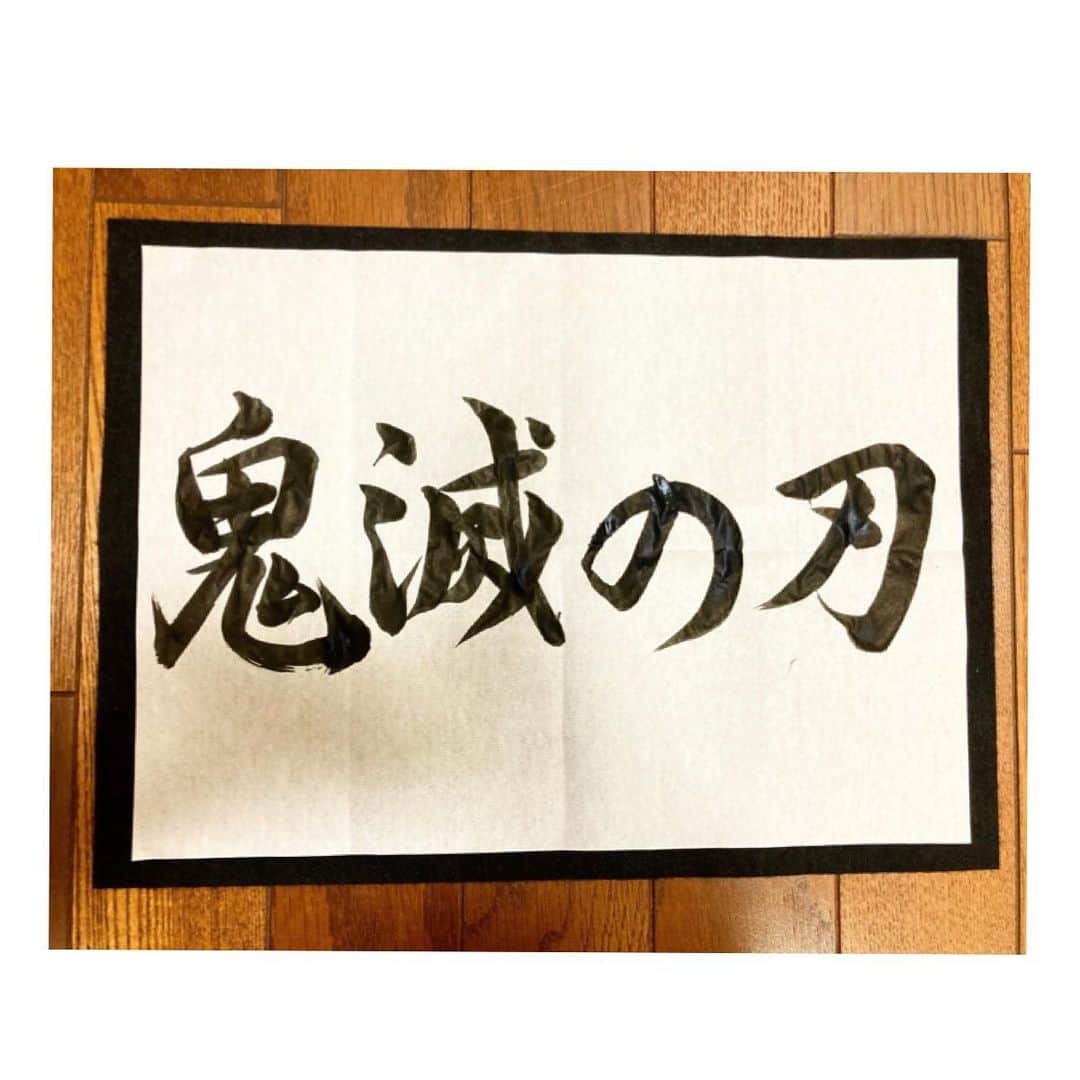 鬼滅の刃